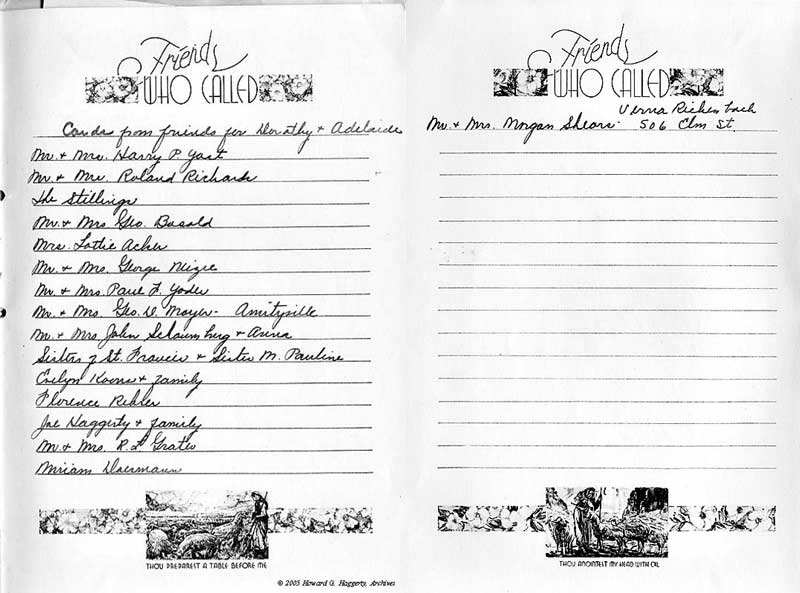 Friends
WHO CALLED
Cards from friends for Dorothy & Adelaide
Mr. & Mrs. Harry P. Yost
Mr. & Mrs. Roland Richards
The Stillings
Mr. & Mrs Geo. Basald
Mrs. Lottie Acker
Mr. & Mrs. George
Mr. & Mrs. Paul F. Yoder
Mr. & Mrs. Geo. D. Moyer - Amityville
Mr. & Mrs John Schaumburg &
Sisters of St. Francis & Sister M. Pauline
Evelyn Koons & family
Florence Rehler
Joe Haggerty & family
Mr & Mrs. R. L. Grates
Miriam
THOU PREPAREST A TABLE BEFORE ME
© 2005 Howard G. Haggerty, Archives
Friends
WHO CALLED
Verna Rickenbach
Mr. & Mrs. Morgan Shears. 506 Elm St.
THOU ANOINTEST MY HEAD WITH OIL